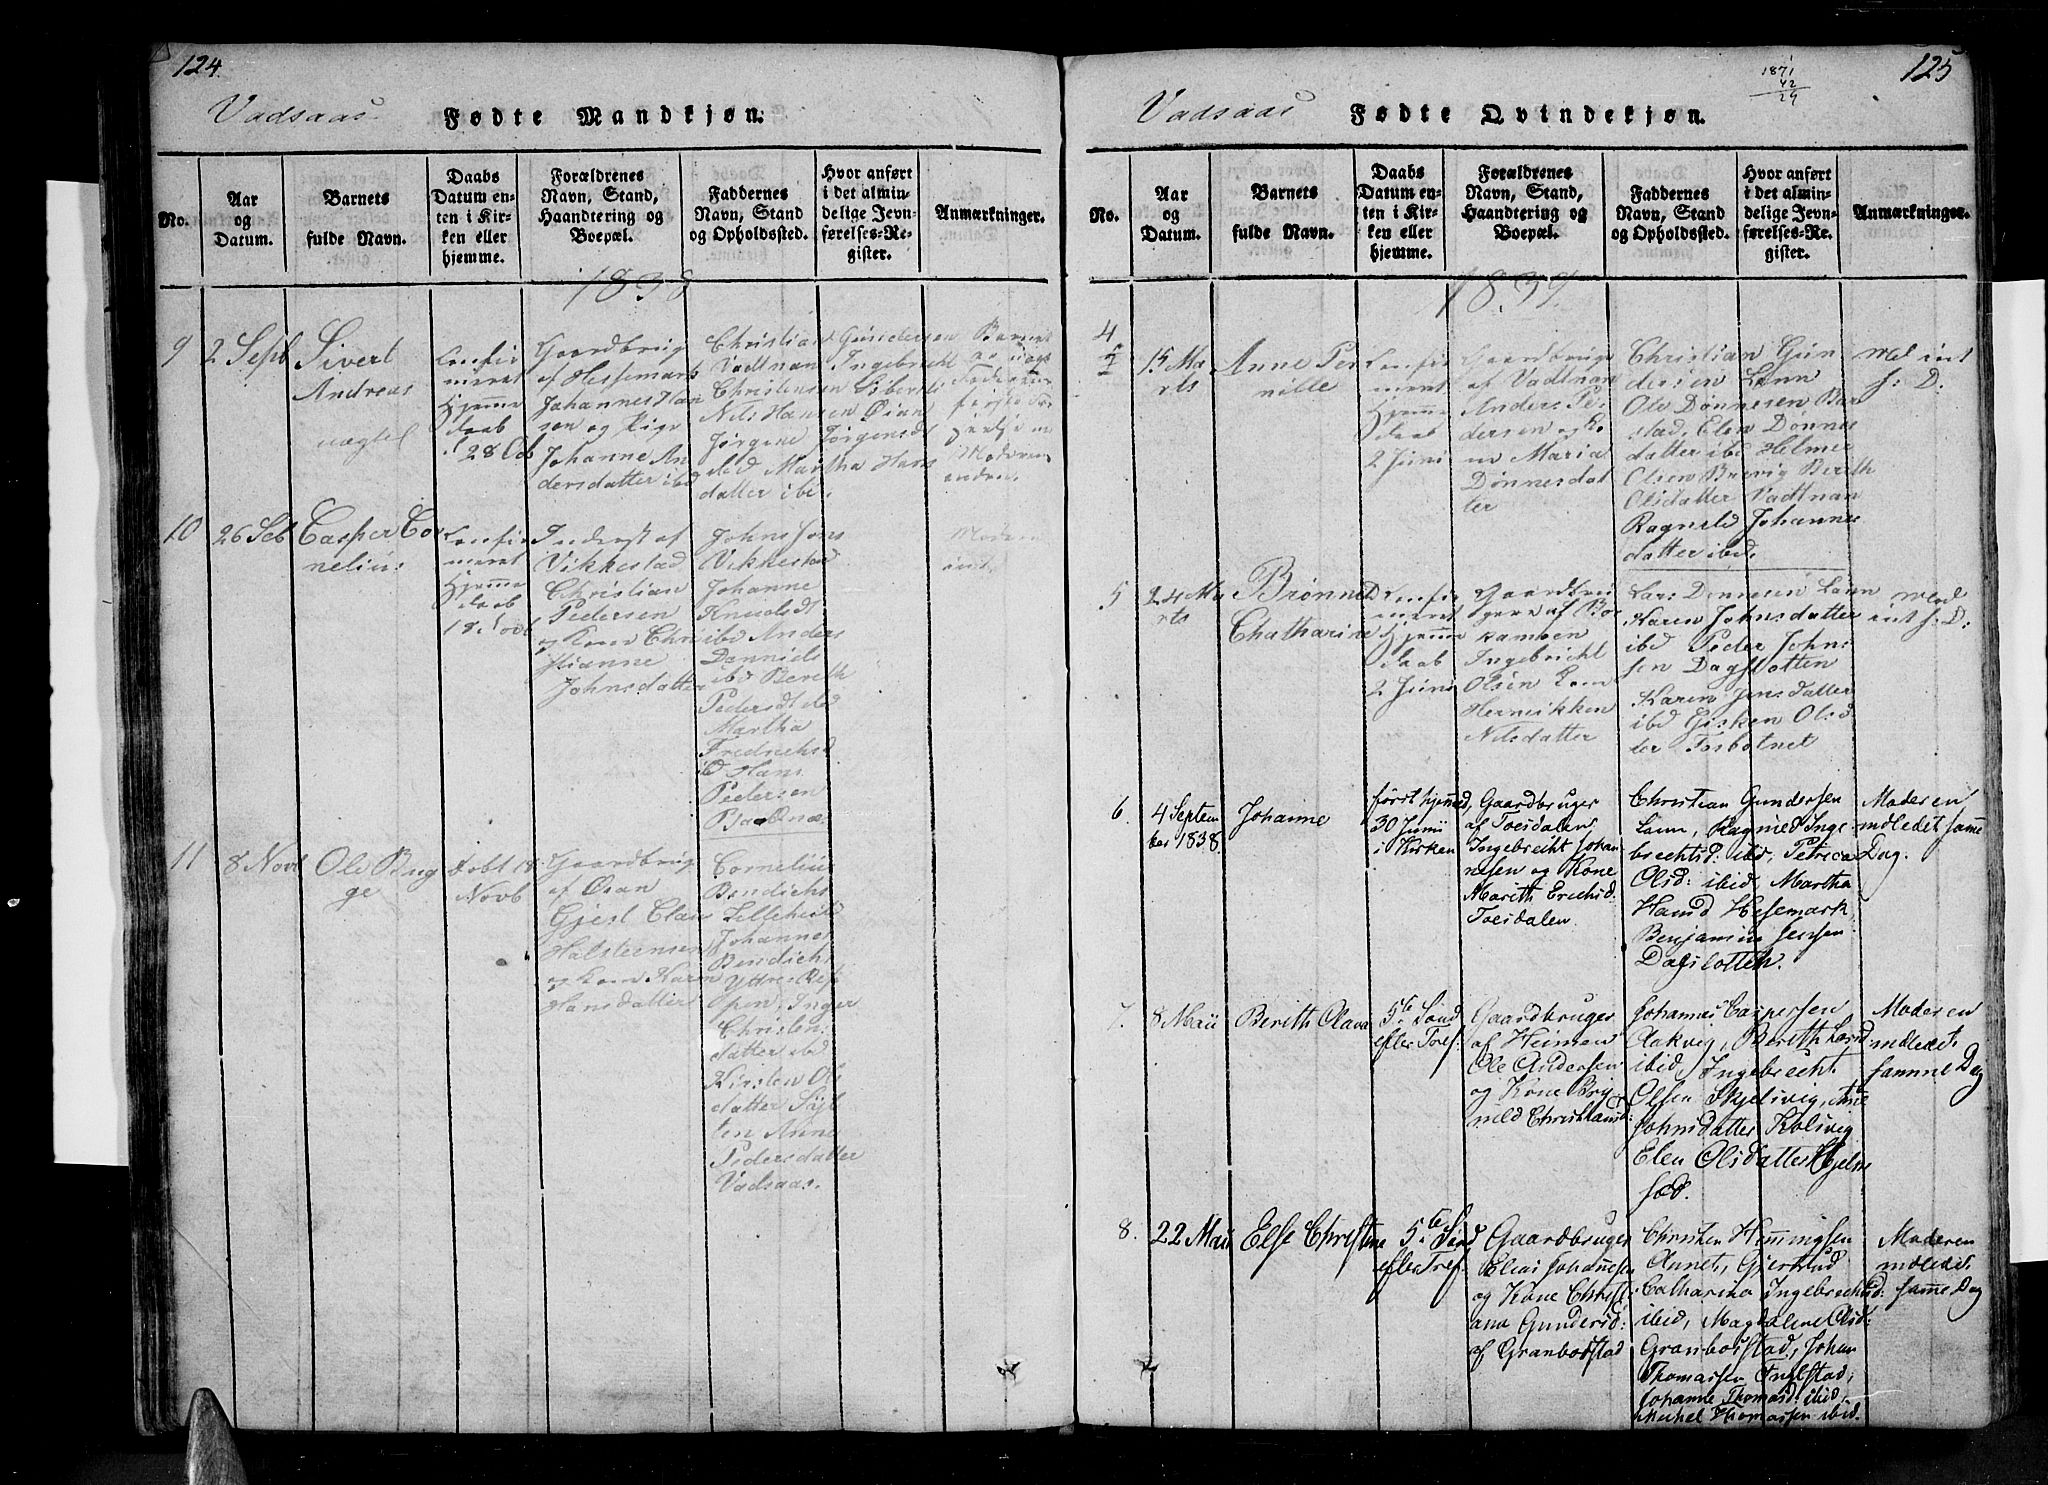 124.
Vadsaas
Fødte Mandkjøn.
No.
Aar
og
Datum.
Barnets
fulde Navn.
Daabs
Datum en-
ten i Kir-
ken eller
hjemme.
Forældrenes
Navn, Stand,
Haandtering og
Boepæl.
Faddernes
Navn, Stand
og Opholdssted.
Hvor anført
i det almin-
delige Jevn-
førelses-Re-
gister.
Anmærkninger.
1838
9
2 Sepb
Sivert
Andreas
uægte
Confir
meret
Hjemme
daab
28 Ocb
Gaardbrug
af Hessemark
Johannes Han
sen og Pige
Johanne An
dersdatter ibd
Christian Gundersen
Vadtnan Ingebricht
Christensen
Nils Hansen Øian
Jørgine Jørgensdt
ibid Martha Hans
datter ibi.
10
26 Seb
Casper Co
nelius
Confir
meret
Hjemme
daab
18 Novb
Inderst af
Vikkestad
Christian
Pedersen
og Kone Chri
stianne
Johnsdatter
Johns Jons
Vikkestad
Johanne
Knudsdt
ibd Anders
Danniels
ibd Berith
Pedersdt ibd
Martha
Fredrichsd
ibd Hans
Pedersen
Moderen
int.
11
8 Novb
Ole Bug
ge
Døbt 18
Novb
Gaardbrug
af Øian
Gjert Clau
Halsteensen
og Kone Karen
Hansdatter
Cornelius
Bendichs
Lilleheild
Johannes
Bendichs
Yttre Ref
pen, Inger
Christen
datter ibd
Kirsten Ols
datter Sylt
ten Anne
Pedersdatter
Vadsaas.
125
1871
42
29
Vadsaas
Fødte Qvindekjøn.
No.
Aar
og
Datum.
Barnets
fulde Navn.
Daabs
Datum en-
ten i Kir-
ken eller
hjemme.
Forældrenes
Navn, Stand,
Haandtering og
Boepæl.
Faddernes
Navn, Stand
og Opholdssted.
Hvor anført
i det almin-
delige Jevn-
førelses-Re-
gister.
Anmærkninger.
1839
4
15 Ma
rts
Anne Per
nille
Confir
meret
Hjemme
daab
2 Juni
Gaardbruge
af Vadtnan
Anders Pe
dersen og Ko
ne Maria
Dønnesdat
ter
Christian Gun
dersen Lønn
Ole Dønnesen Bar
stad, Elen Dønnes
datter ibd Helmer
Olsen Brevig Berith
Olsdatter Vadtnan
Ragnild Johannes
datter ibd.
med int
J: D.
5
24 Ma
rts
Brønne
Chatharine
Confir
meret
Hjemme
daab
2 Juni
Gaardbru
gere af Bo
kamoen
Ingebricht
Olsen Kone
Hernikken
Nilsdatter
Lars Dønnesen Lønn
Karen Johnsdatter
ibd Peder Johns
sen Dagslotten
Karen Jensdatter
ibd Gisken Olsd
ter Tosbotnet
med
int J: D:
6.
4 Septem
ber 1838.
Johanne
først hjemmed,
30 Junii
i Kirken
Gaardbruger
af Toesdalen
Ingebrecht Johan
nesen og Kone
Marith Erichsd:
Toesdalen.
Christian Gundersen
Lønn, Ragnild Inge
brechtsd: ibid, Petrica
Olsd: ibid, Martha
Hansd Hesemark,
Benjamin Jensen
Dagslotten.
Moderen
indledet samme
Dag.
7.
8 Maii
Berith Olava
5te Sønd
efter Tref:
Gaardbruger
af Heimen
Ole Andersen
og Kone Brig
nild Christiansd:
Johannes Caspersen
Aakvig, Berith Larsd:
ibid, Ingebrecht
Olsen Skjelsvig, Ane
Johnsdatter Kolsvig
Elen Olsdatter Hjelm
sæd.
Moderen
indledet
samme Dag
8.
22 Maii
Else Christine
5te Sønd
efter Tref.
Gaardbruger
Elias Johannesen
og Kone Christi
ana Gundersd:
af Granbostad
Christen Hemmingsen
Aunet, Giertrud
Catharina Ingebrechtsd:
ibid, Magdalene Olsd:
Granbostad, Johan
Thomassen Fuglstad,
Johanne Thomasd: ibid,
Michel Thomassen ibid.
Moderen
indledet
samme Dag